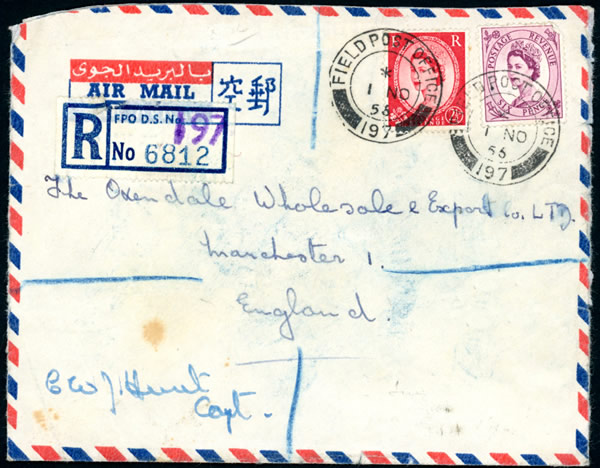 بالبريد الجوى
AIR MAIL
空郵
R
FPO D.S. No.
197
No 6812
FIELD POST OFFICE
*
1 NO
56
197
R
2½
POSTAGE REVENUE
SIX PENCE
POST OFFICE
1 NO
56
197
The Oxendale Wholesale & Export Co. LTD.
Manchester 1.
England.
C W J Hunt
Capt.